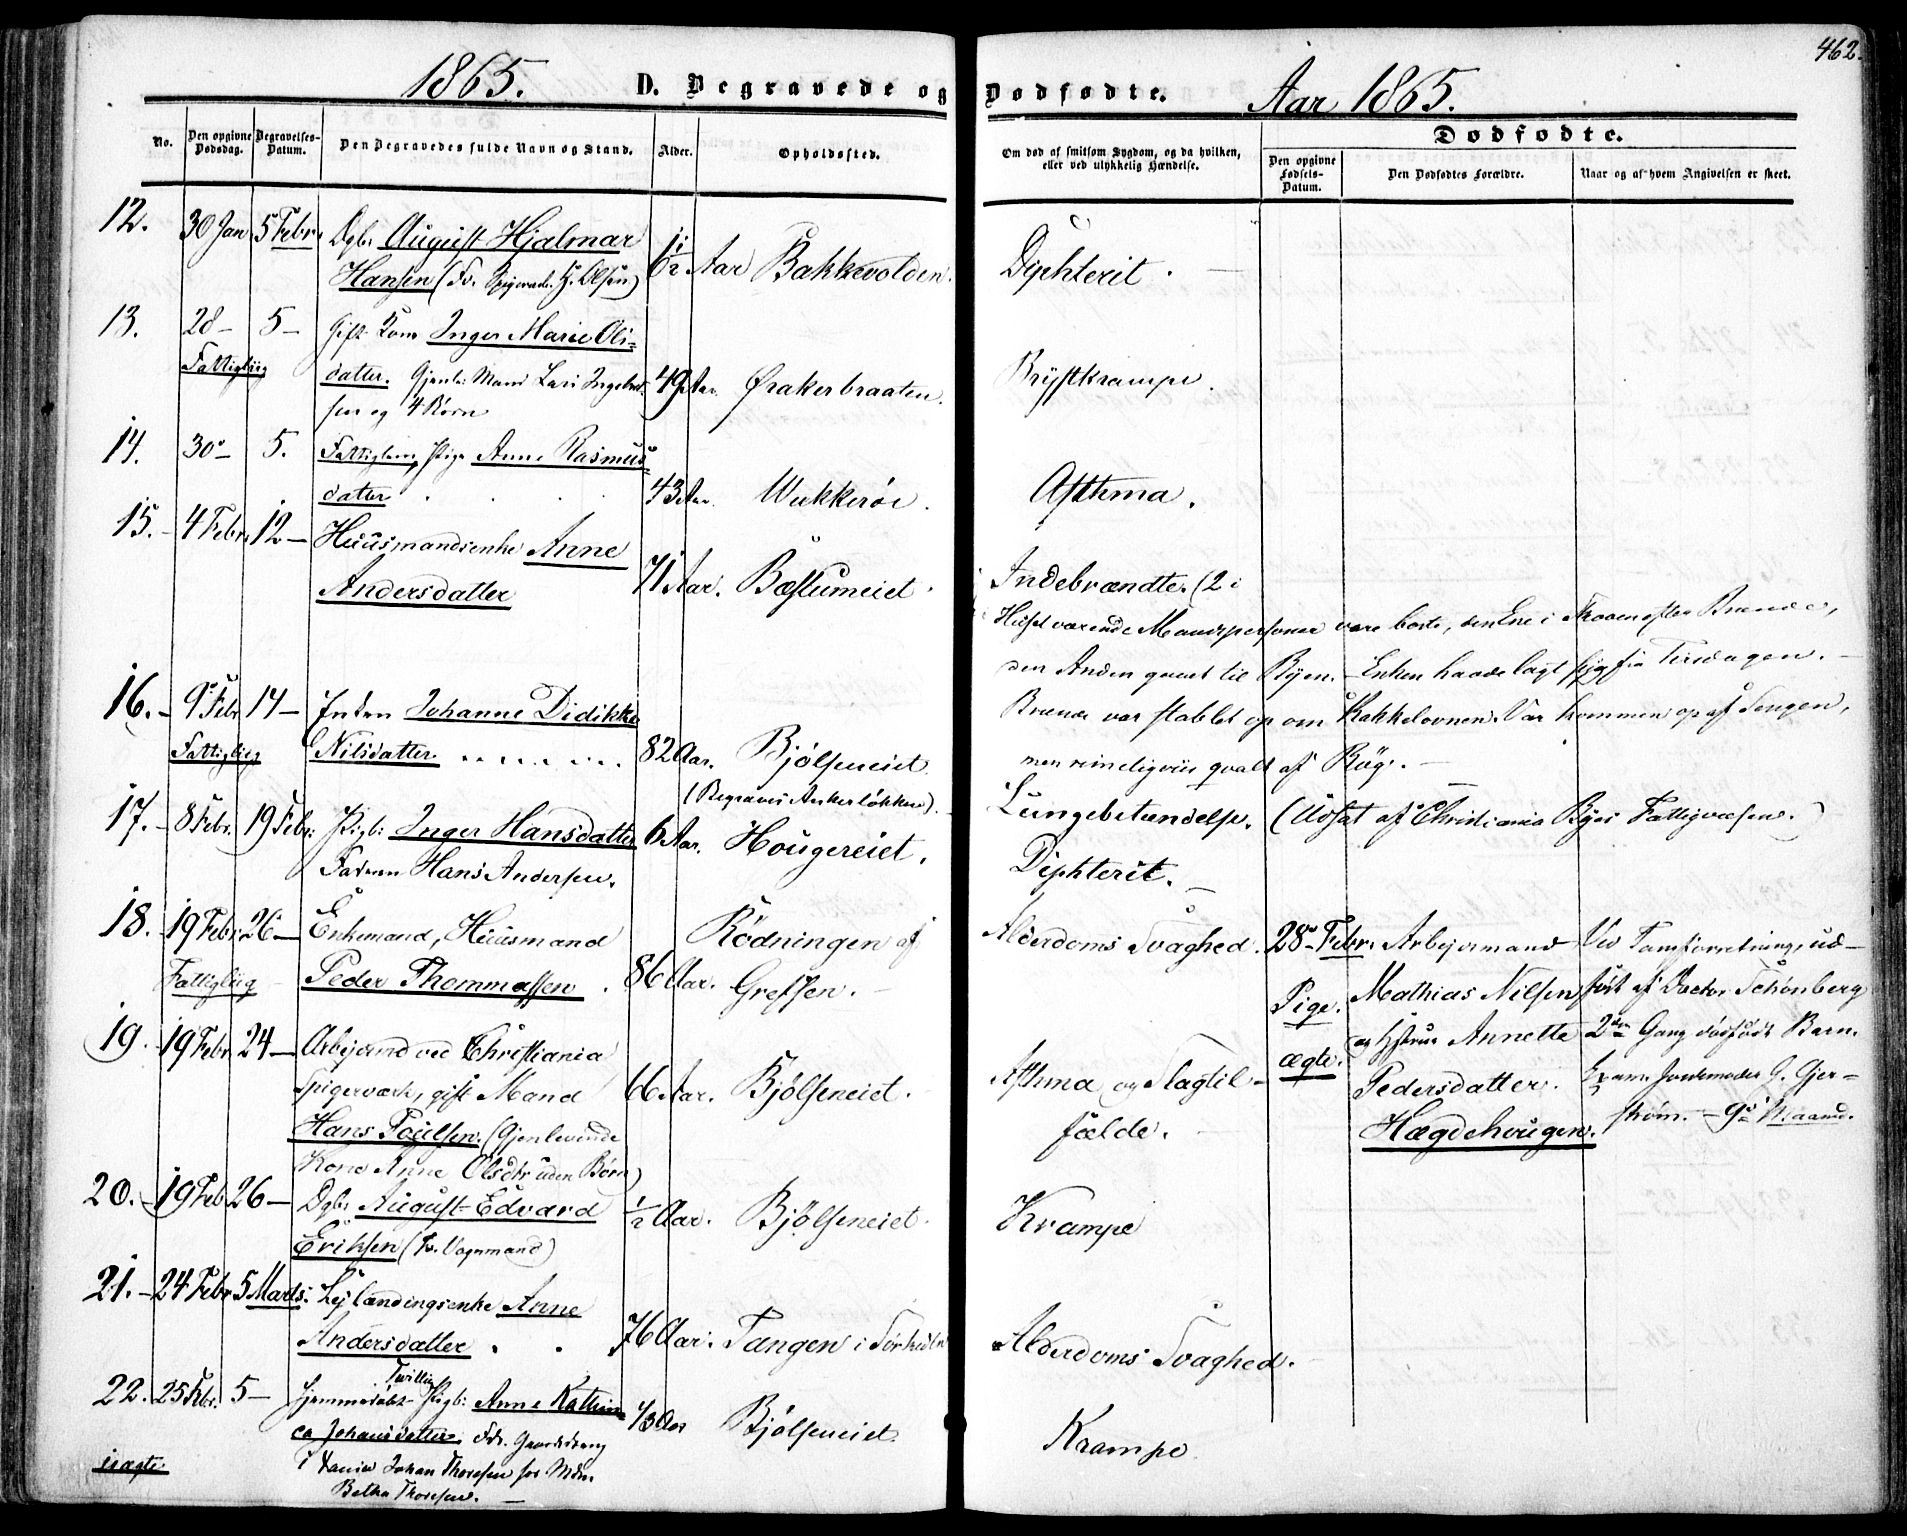 462.
1865.
D. Begravede og Dødfødte.
Aar 1865.
No.
Den opgivne Dødsdag.
Begravelses-Datum.
Den Begravedes fulde Navn og Stand.
Alder.
Opholdssted.
Om død af smitsom Sygdom, og da hvilken,
eller ved ulykkelig Hændelse.
Dødfødte.
Den opgivne Fødsels-Datum.
Den Dødfødtes Forældre.
Naar og af hvem Angivelsen er skeet.
12. 30 Jan 5 Febr. Dgb: August Hjalmar
Hansen (F. H. Olsen) 6 1/2 Aar Bakkevolden. Diphterit.
13. 28 – 5 – Gift Kone Inger Marie Oli-
Fattiglig datter. Gjenl: Mand Lars 49 Aar. Ørakerbraaten. Brystkrampe.
sen og 4 Børn
14. 30 – 5. Fattiglem, Pige Anne Rasmus-
datter 43 Aar. Wækkerøe. Asthma.
15. – 4 Febr. 12 – Huusmandsenke Anne
Andersdatter 71 Aar. Bæstumeiet. Indebrændte. (2 i
Huset værende Mandspersoner vare borte, den Ene i Skoven efter Brænde,
den Anden gaaet til Byen. – Enken havde lagt sig fra Tirsdagen. –
Brænde var stablet op om Kakkelovnen. Var kommen op af Sengen,
men rimeligviis qvalt af Røg. –
16. – 9 Febr 14 – Enken Johanne Didikke
Fattiglig Nilsdatter 82 Aar. Bjølseneiet
(Begraves Ankerløkken).
Lungebetændelse. (Udsat af Christiania Byes Fattigvæsen.)
17. – 8 Febr. 19 Febr: Pigb: Inger Hansdatter 6 Aar. Hougereiet.
Faderen Hans Andersen. Diphterit. –
18. 19 Febr. 26 – Enkemand, Huusmand Rødningen af
Fattiglig Peder Thommassen. 86 Aar. Grefsen. –
Alderdoms Svaghed.
28 Febr. Arbejdsmand Ved Tangforretning, ud-
Pige. Mathias Nilsen ført af Doctor Schønberg
ægte. og Hstrue Annette 2den Gang dødfødt Barn.
Pedersdatter. Exam. Jordemoder G. Gjer-
Hægdehougen. strøm. – 9de Maaned.
19. 19 Febr. 24 – Arbejdsmd ved Christiania
Spigerværk, gift Mand 66 Aar. Bjølseneiet. Asthma og Slagtil-
Hans Poulsen. (Gjenlevende fælde.
Kone Anne Olsdtr uden Børn)
20. – 19 Feb 26 – Dgb: August Edvard 1/2 Aar. Bjølseneiet. Krampe
Eriksen (F. Vognmand)
21. – 24 Febr. 5 Marts. Lejlændingsenke Anne
Andersdatter 76 Aar. Tangen i Sørkedln Alderdoms Svaghed.
22. 25 Febr. 5 – Hjemmedøbt Tvilling Pigb: Anne Kathin-
ca Johansdatter. 1/3 Aar Bjølseneiet. Krampe.
uægte i Johan Thoresen for Mdm.
Thoresen. –